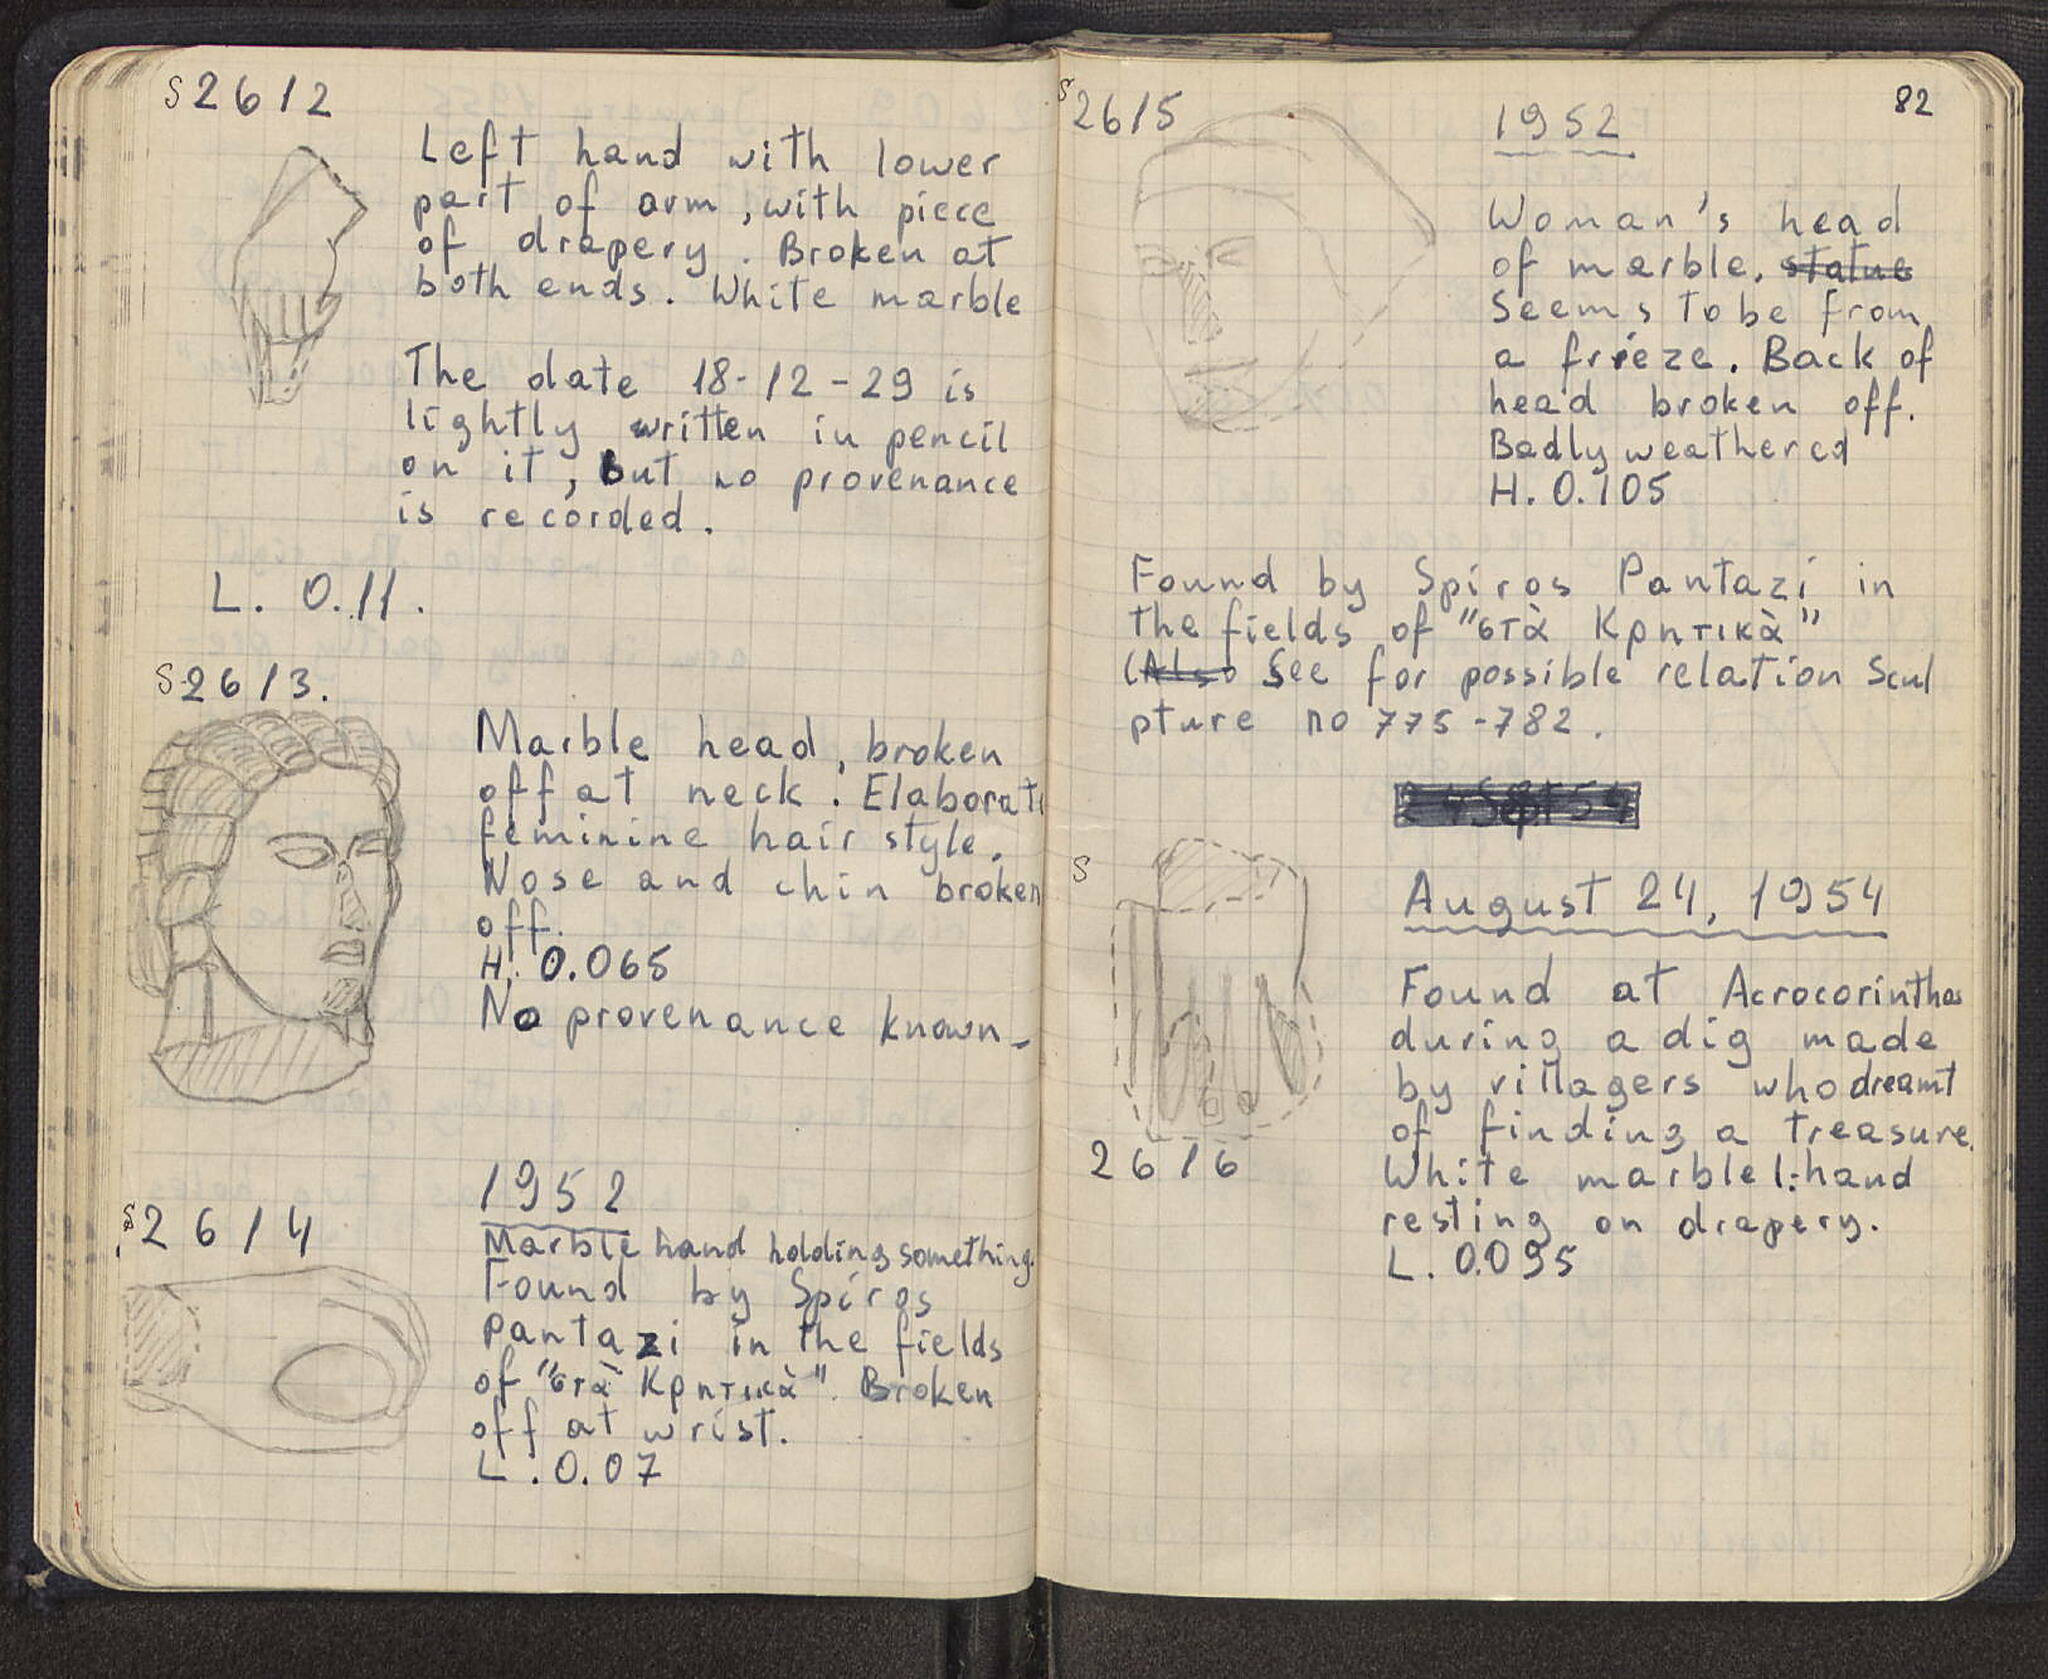 S2612
Left hand with lower
part of arm, with piece
of drapery. Broken at
both ends. White marble
The date 18-12-29 is
lightly written in pencil
on it, But no provenance
is recorded.
L. 0.11.
S2613.
Marble head, broken
off at neck. Elaborate
feminine hair style.
Nose and chin broken
off.
H. 0.065
No provenance known-
S2614
1952
Marble hand holding something.
Found by Spiros
Pantazi in the fields
of "στὰ Κρητικὰ". Broken
off at wrist.
L. 0.07
82
S2615
1952
Woman's head
of marble. statue
Seems to be from
a frieze. Back of
head broken off.
Badly weathered
H. 0.105
Found by Spiros Pantazi in
the fields of "στὰ Κρητικὰ"
(Also See for possible relation Scul
pture no 775-782.
S
2616
August 24, 1954
Found at Acrocorinthos
during a dig made
by villagers who dreamt
of finding a treasure.
White marble l. hand
resting on drapery.
L. 0.095